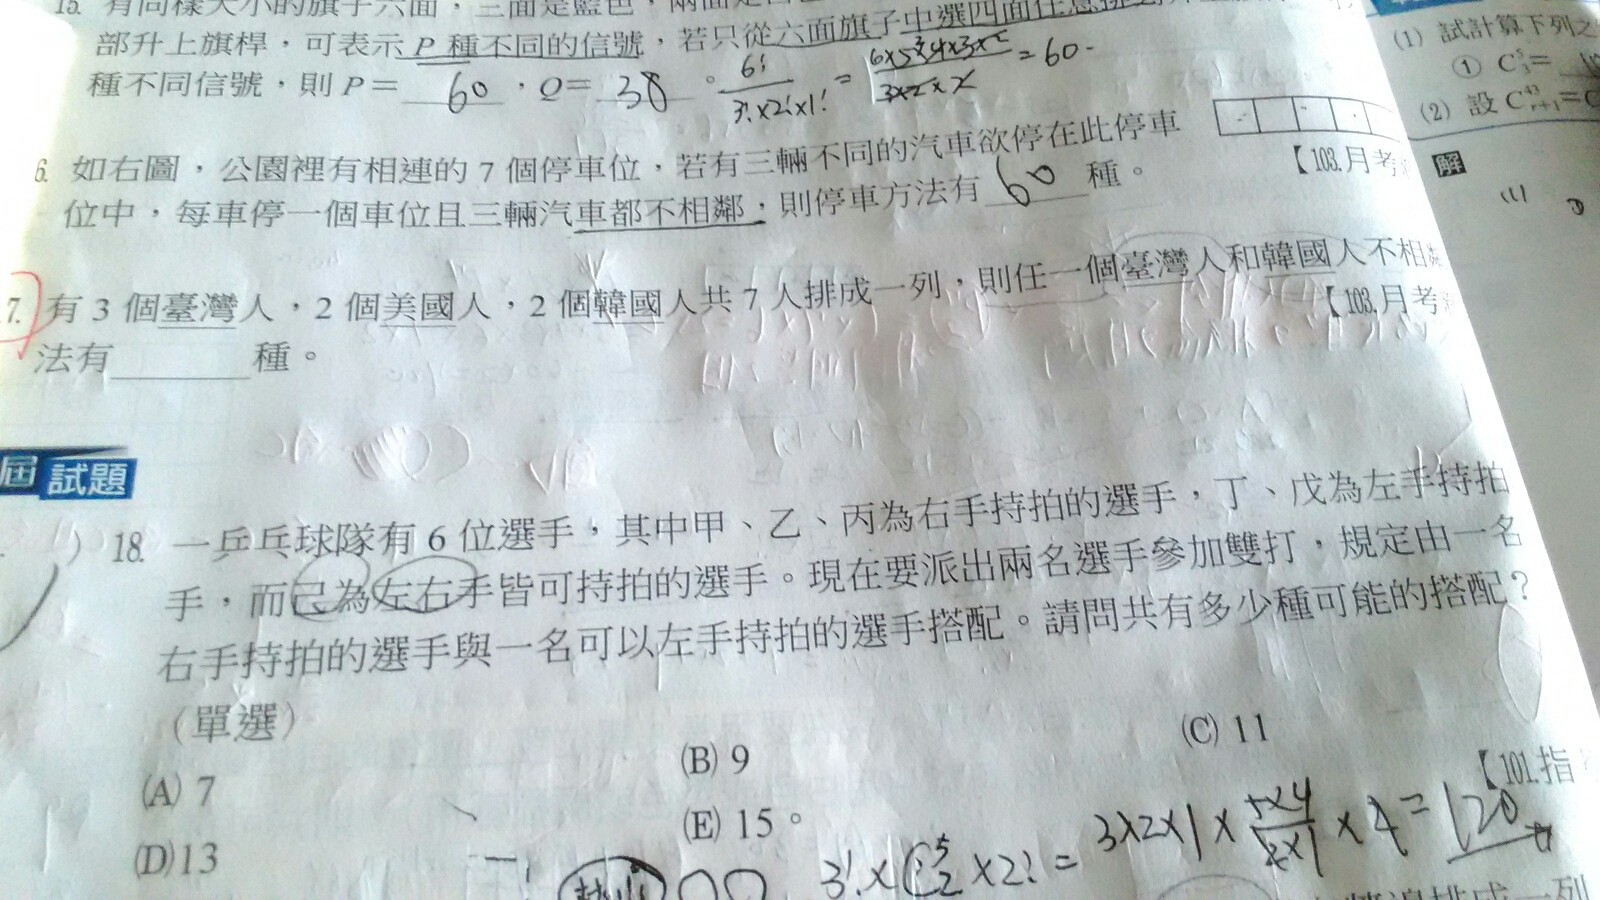 15. 有同樣大小的旗子六面，三面是藍色，兩面是
部升上旗桿，可表示 P 種不同的信號，若只從六面旗子中選四面任意排列
種不同信號，則 P＝ 60 ，Q＝ 38 。 6!/3!×2!×1! = 6×5×4×3×2/3×2×2 = 60
6. 如右圖，公園裡有相連的 7 個停車位，若有三輛不同的汽車欲停在此停車
位中，每車停一個車位且三輛汽車都不相鄰，則停車方法有 60 種。
【103.月考
17. 有 3 個臺灣人，2 個美國人，2 個韓國人共 7 人排成一列，則任一個臺灣人和韓國人不相
法有 種。
【103.月考
屆試題
( ) 18. 一乒乓球隊有 6 位選手，其中甲、乙、丙為右手持拍的選手，丁、戊為左手持拍
手，而己為左右手皆可持拍的選手。現在要派出兩名選手參加雙打，規定由一名
右手持拍的選手與一名可以左手持拍的選手搭配。請問共有多少種可能的搭配？
（單選）
(A) 7
(B) 9
(C) 11
(D) 13
(E) 15。
【101.指
3!×C⁵₂×2! = 3×2×1×5×4/2×1×4 = 120
排成一列
(1) 試計算下列之
① C⁵₃＝
(2) 設 C⁴³ᵣ₊₁＝C
解
(1) ①